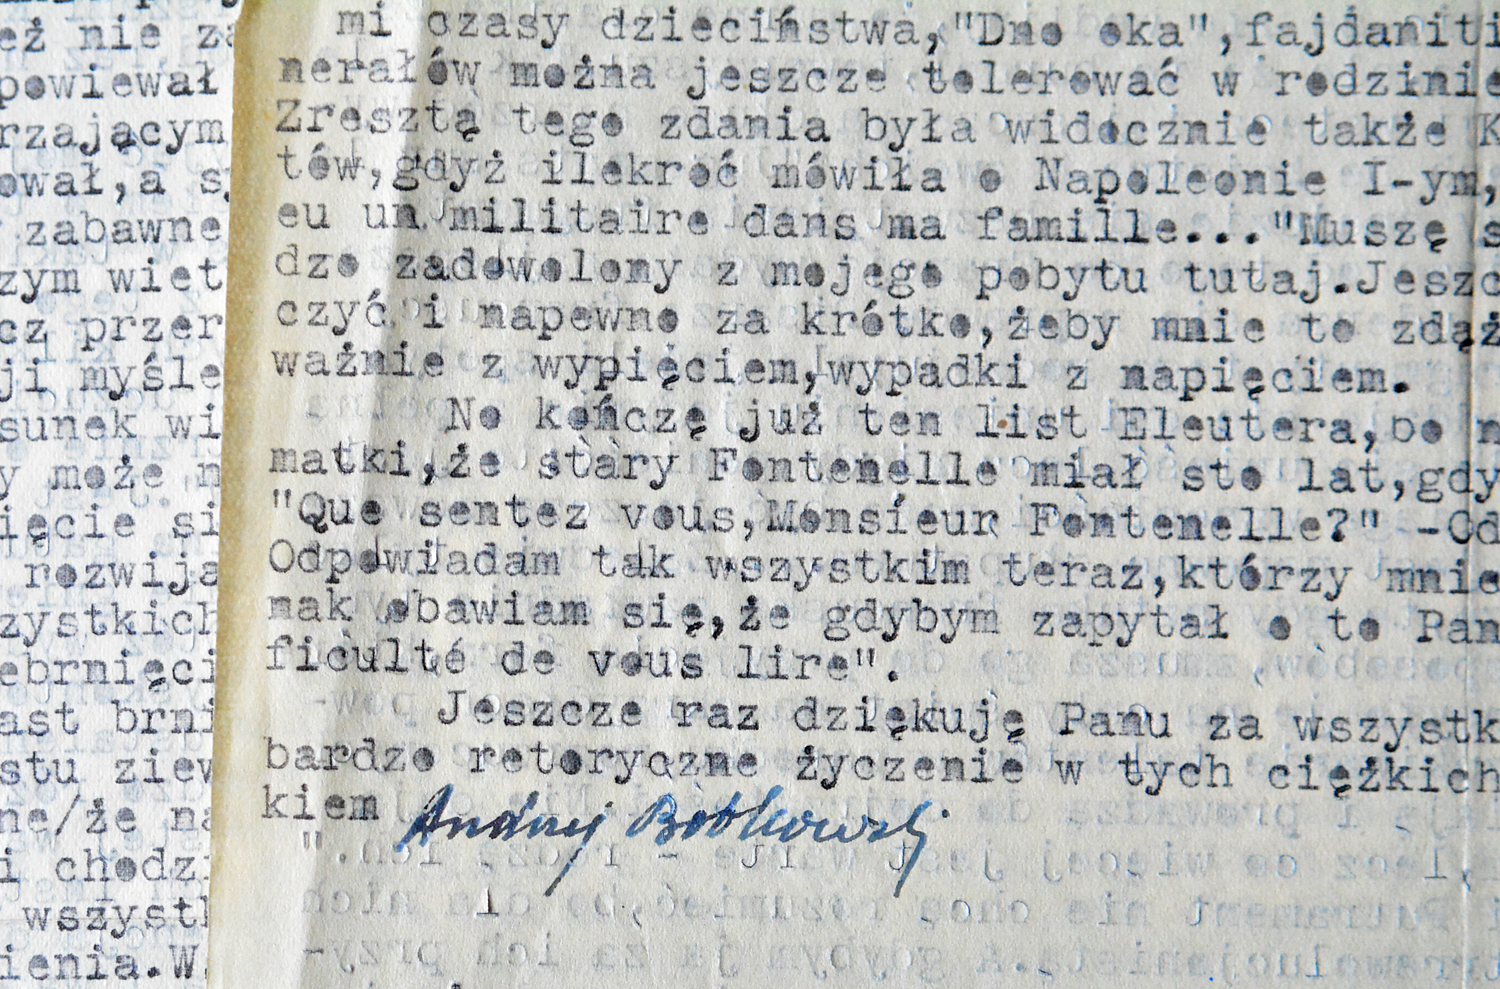 eż nie za
powiewał
rzającym
ował,a s
zabawne
zym wiet
cz przer
ji myśle
sunek wi
y może n
ięcie si
rozwija
zystkich
ebrnięci
ast brni
stu ziew
ne/że na
i chodzi
wszystk
ienia.W
mi czasy dzieciństwa,"Dno oka",fajdaniti
nerałów można jeszcze tolerować w rodzinie
Zresztą tego zdania była widocznie także K
tów,gdyż ilekroć mówiła o Napoleonie I-ym,
eu un militaire dans ma famille..."Muszę s
dzo zadowolony z mojego pobytu tutaj.Jeszc
czyć i napewno za krótko,żeby mnie to zdąż
ważnie z wypięciem,wypadki z napięciem.
No kończę już ten list Eleutera,bo n
matki,że stary Fontenelle miał sto lat,gdy
"Que sentez vous,Monsieur Fontenelle?" -Od
Odpowiadam tak wszystkim teraz,którzy mnie
nak obawiam się,że gdybym zapytał o to Pan
ficulté de vous lire".
Jeszcze raz dziękuję Panu za wszystk
bardzo retoryczne życzenie w tych ciężkich
kiem Andrzej Bobkowski